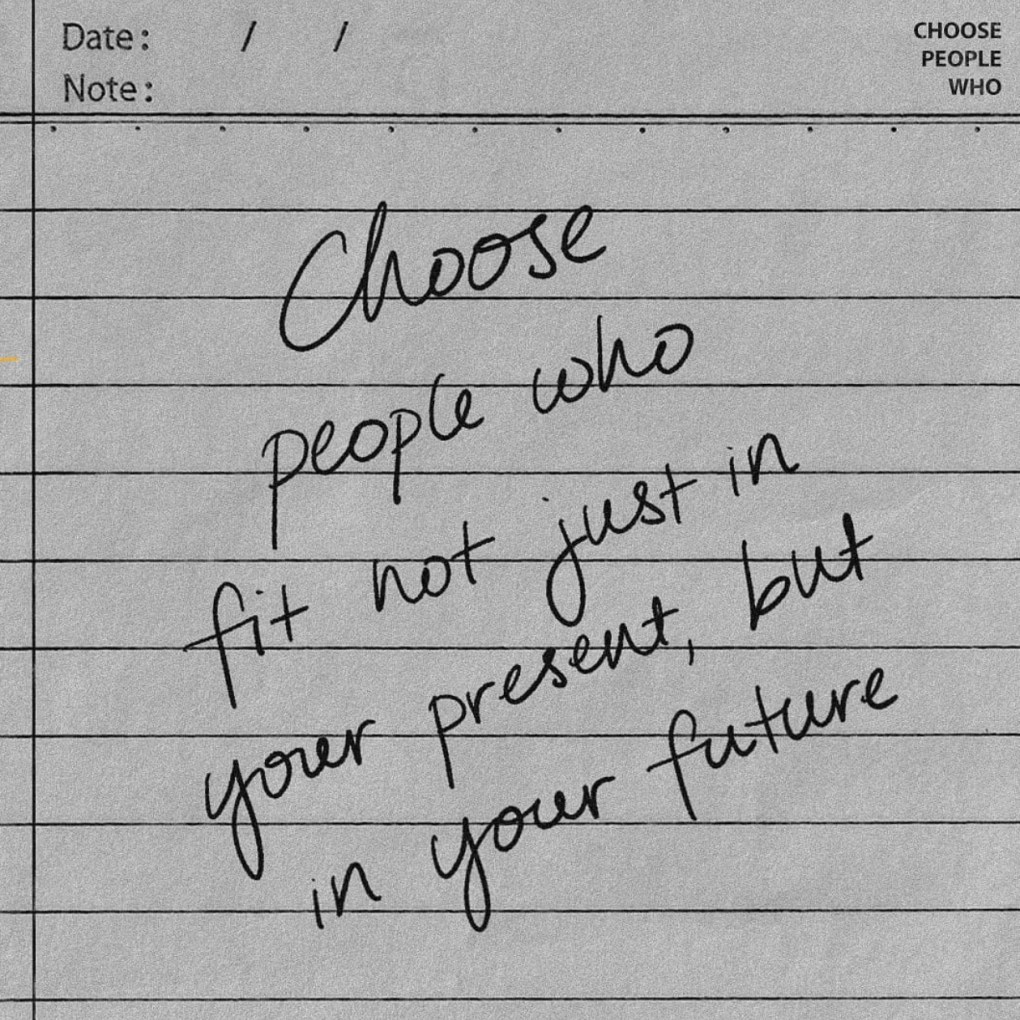 Date: / /
Note:
CHOOSE
PEOPLE
WHO
Choose
people who
fit not just in
your present, but
in your future